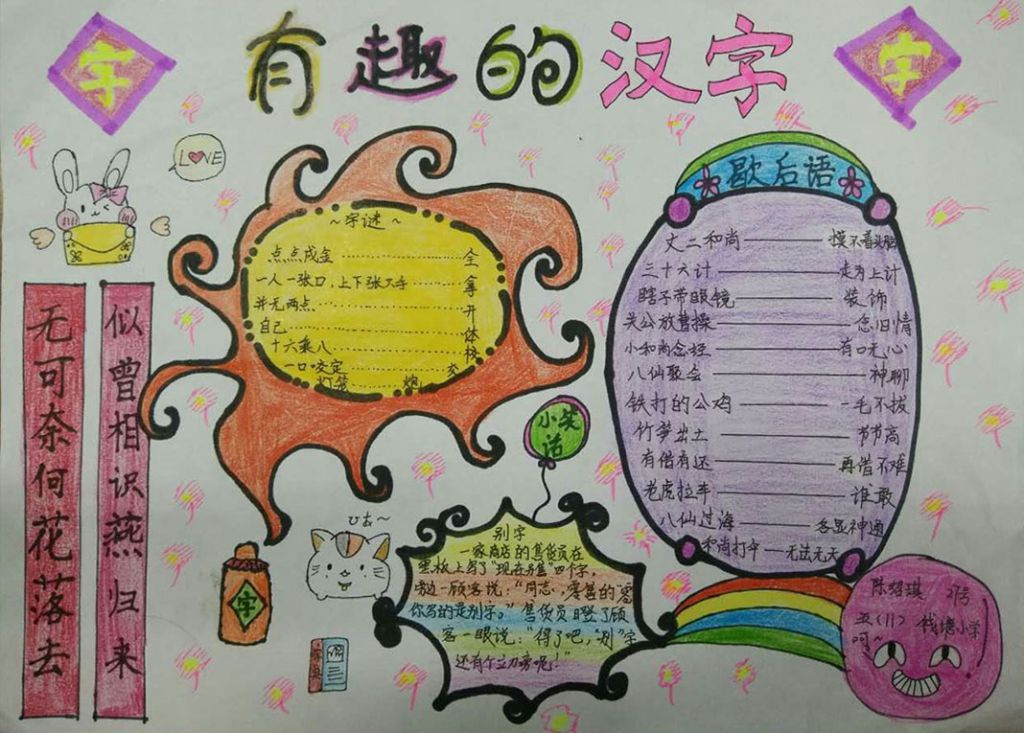 字
有趣的汉字
字
LOVE
无可奈何花落去
似曾相识燕归来
~字谜~
点点成金 全
一人一张口,上下张大手 拿
并无两点 开
自己 体
十六乘八 校
一口咬定 交
灯笼 炮
歇后语
丈二和尚 摸不着头脑
三十六计 走为上计
瞎子带眼镜 装饰
关公放曹操 念旧情
小和尚念经 有口无心
八仙聚会 神聊
铁打的公鸡 一毛不拔
竹笋出土 节节高
有借有还 再借不难
老虎拉车 谁敢
八仙过海 各显神通
和尚打伞 无法无天
小笑话
别字
一家商店的售货员在
黑板上写了"现在别售"四字,
一顾客说:"同志,零售的"零"
你写的是别字。"售货员瞪了顾
客一眼说:"得了吧,"别"字
还有个立刀旁呢!"
字
陈绍琪 21号
五(11) 钱塘小学
呵~